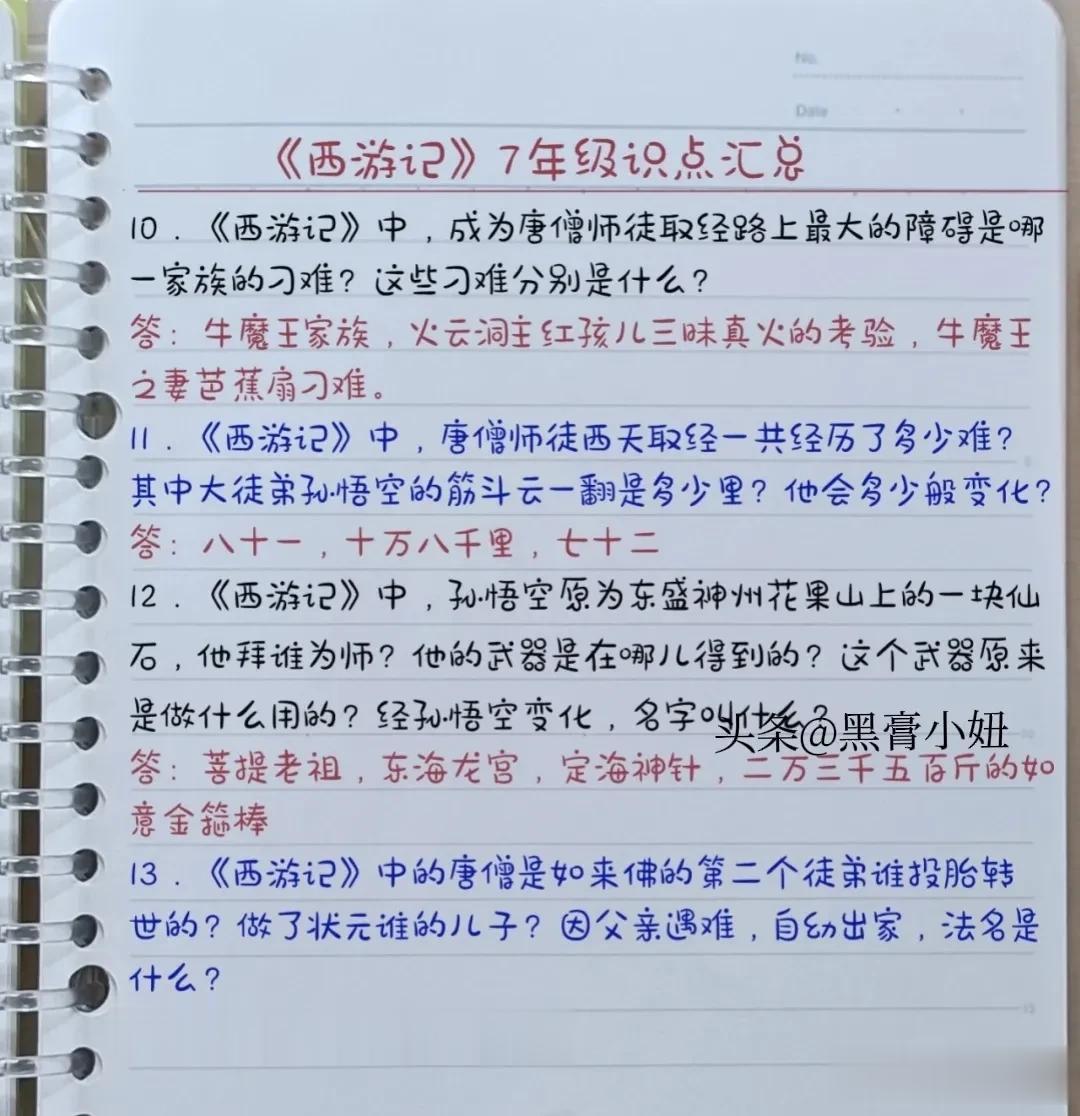 No.
Date
《西游记》7年级识点汇总
10．《西游记》中，成为唐僧师徒取经路上最大的障碍是哪
一家族的刁难？这些刁难分别是什么？
答：牛魔王家族，火云洞主红孩儿三昧真火的考验，牛魔王
之妻芭蕉扇刁难。
11．《西游记》中，唐僧师徒西天取经一共经历了多少难？
其中大徒弟孙悟空的筋斗云一翻是多少里？他会多少般变化？
答：八十一，十万八千里，七十二
12．《西游记》中，孙悟空原为东盛神州花果山上的一块仙
石，他拜谁为师？他的武器是在哪儿得到的？这个武器原来
是做什么用的？经孙悟空变化，名字叫什么？
头条@黑膏小妞
答：菩提老祖，东海龙宫，定海神针，二万三千五百斤的如
意金箍棒
13．《西游记》中的唐僧是如来佛的第二个徒弟谁投胎转
世的？做了状元谁的儿子？因父亲遇难，自幼出家，法名是
什么？